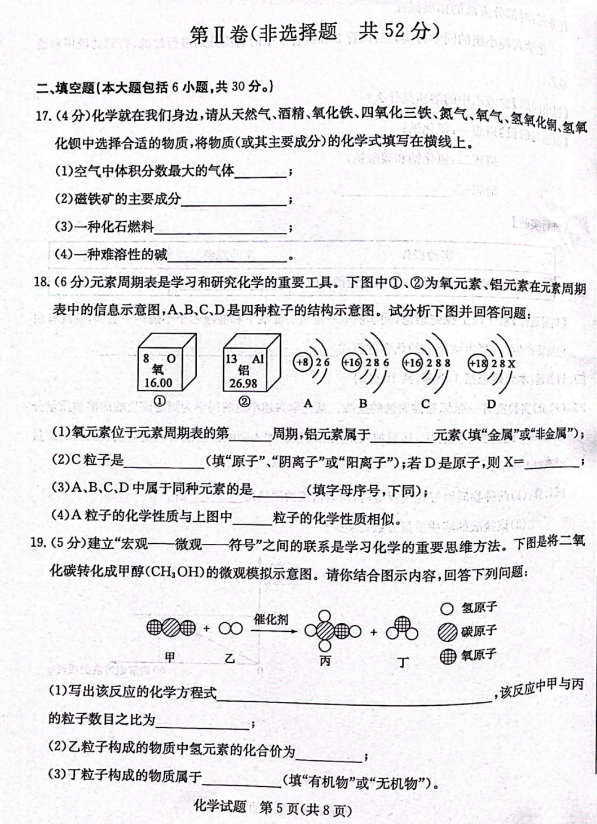 第Ⅱ卷(非选择题 共52分)
二、填空题(本大题包括6小题,共30分。)
17.(4分)化学就在我们身边,请从天然气、酒精、氧化铁、四氧化三铁、氮气、氧气、氢氧化铜、氢氧
化钡中选择合适的物质,将物质(或其主要成分)的化学式填写在横线上。
(1)空气中体积分数最大的气体________;
(2)磁铁矿的主要成分________;
(3)一种化石燃料________;
(4)一种难溶性的碱________。
18.(6分)元素周期表是学习和研究化学的重要工具。下图中①、②为氧元素、铝元素在元素周期
表中的信息示意图,A、B、C、D是四种粒子的结构示意图。试分析下图并回答问题:
8 O 氧 16.00 ①
13 Al 铝 26.98 ②
+8 2 6 A
+16 2 8 6 B
+16 2 8 8 C
+18 2 8 X D
(1)氧元素位于元素周期表的第______周期,铝元素属于________元素(填“金属”或“非金属”);
(2)C粒子是________(填“原子”、“阴离子”或“阳离子”);若D是原子,则X=________;
(3)A、B、C、D中属于同种元素的是______(填字母序号,下同);
(4)A粒子的化学性质与上图中______粒子的化学性质相似。
19.(5分)建立“宏观——微观——符号”之间的联系是学习化学的重要思维方法。下图是将二氧
化碳转化成甲醇(CH₃OH)的微观模拟示意图。请你结合图示内容,回答下列问题:
+ 催化剂 +
甲 乙 丙 丁
氢原子
碳原子
氧原子
(1)写出该反应的化学方程式________________________________,该反应中甲与丙
的粒子数目之比为____________;
(2)乙粒子构成的物质中氢元素的化合价为________;
(3)丁粒子构成的物质属于__________(填“有机物”或“无机物”)。
化学试题 第5页(共8页)